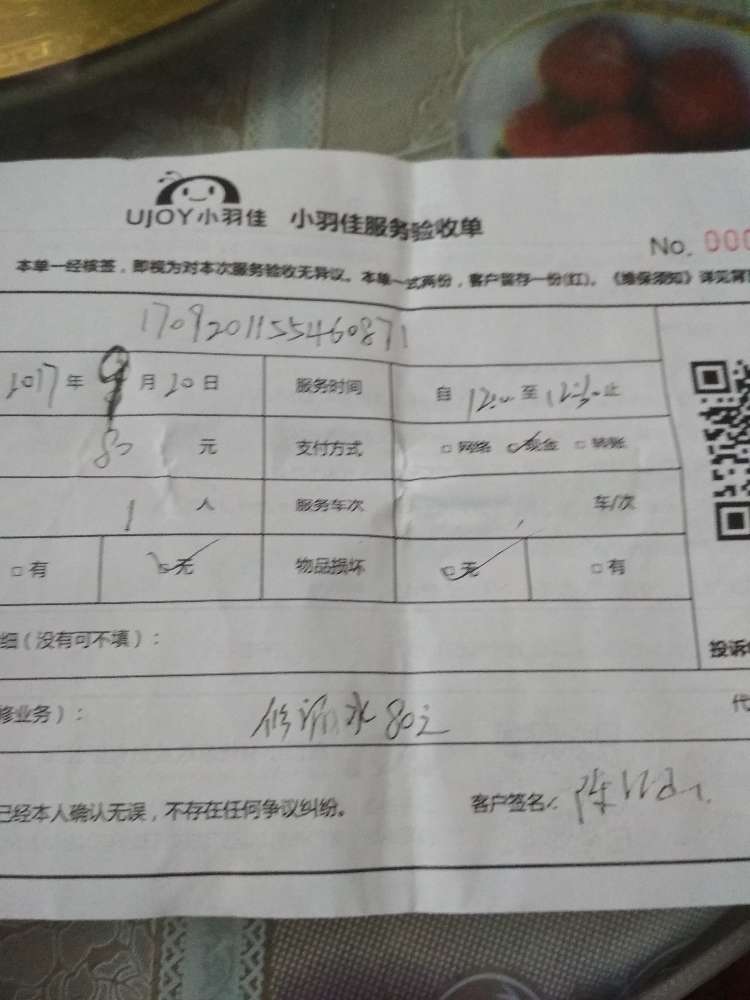 UJOY小羽佳 小羽佳服务验收单
No. 000
本单一经核签，即视为对本次服务验收无异议。本单一式两份，客户留存一份(红)。《维保须知》详见背
1709201155460871
2017年9月20日 服务时间 自12:00至12:30止
80元 支付方式 □网络 ☑现金 □转账
1人 服务车次 车/次
□有 ☑无 物品损坏 ☑无 □有
细（没有可不填）：
投诉
修业务）： 修漏水80元
代
已经本人确认无误，不存在任何争议纠纷。 客户签名：